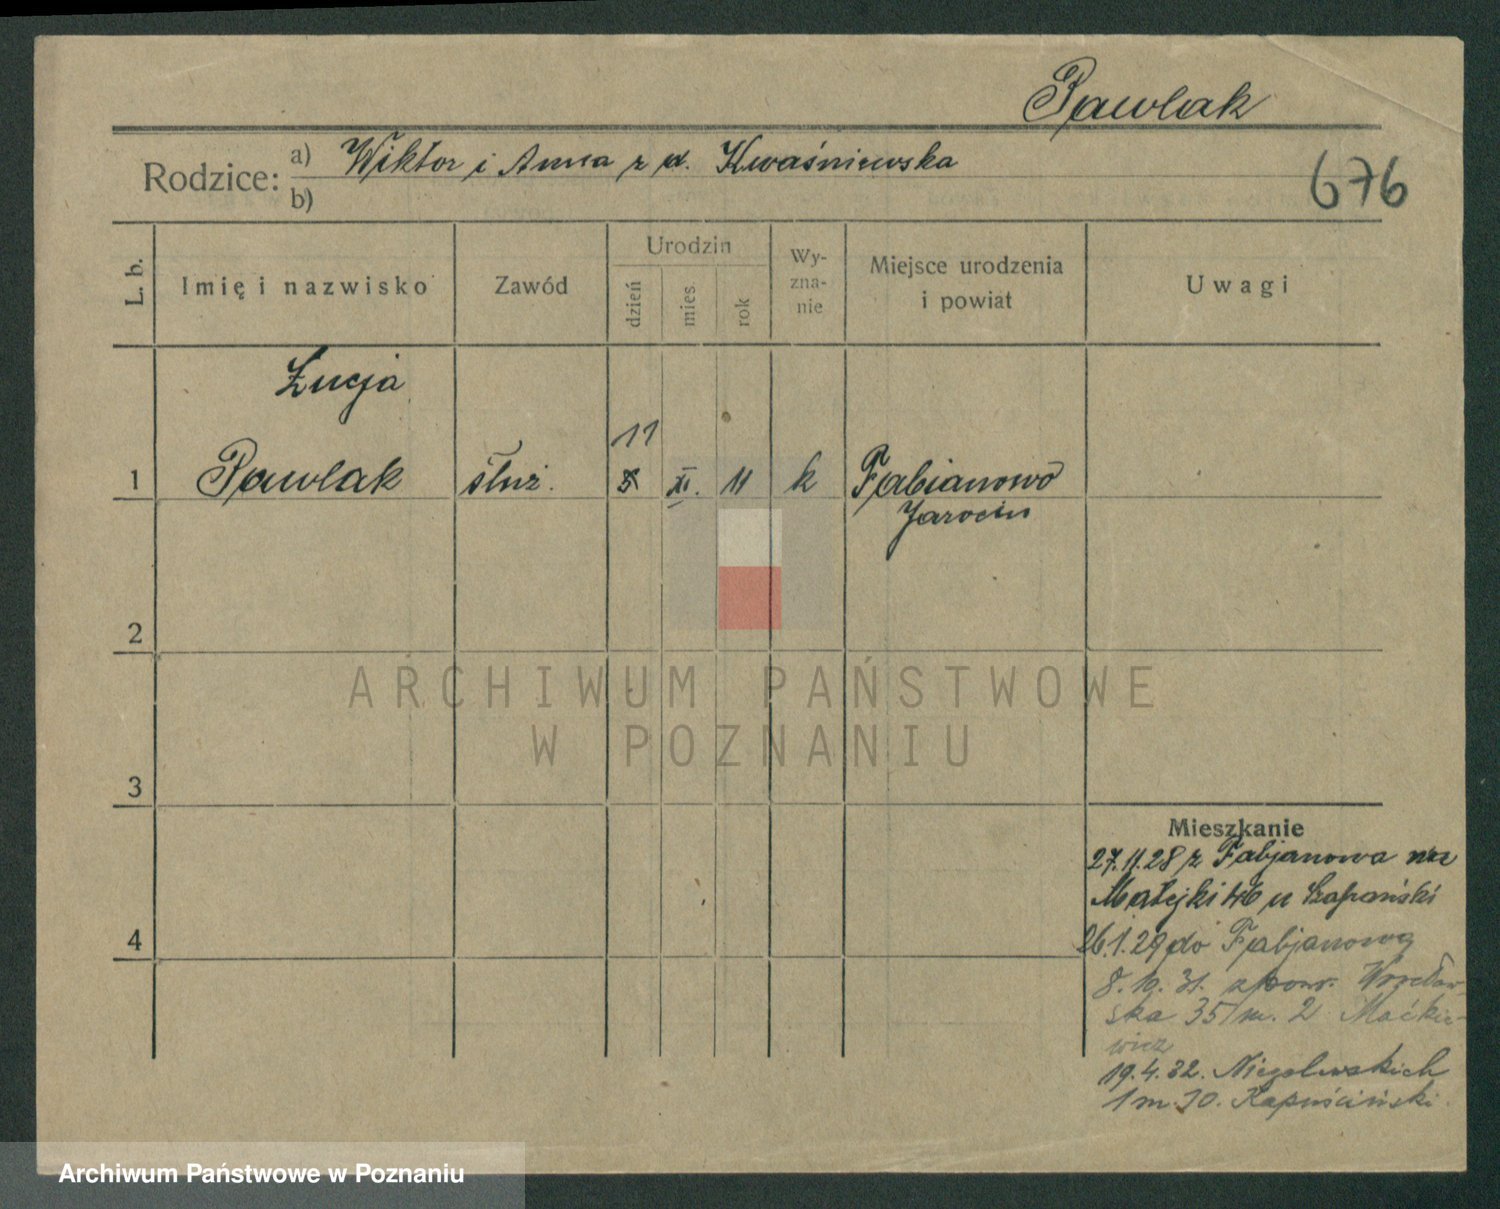 Pawlak
Rodzice: a) Wiktor i Anna z d. Kwaśniewska
b)
676
L. b.
Imię i nazwisko
Zawód
Urodzin
dzień
mies.
rok
Wy-
zna-
nie
Miejsce urodzenia
i powiat
Uwagi
Łucja
11
1 Pawlak służ. XI. 11 k Fabianowo
Jarocin
2
3
4
Mieszkanie
27.11.28 z Fabjanowa na
Matejki 46 u Szafrański
26.1.29 do Fabjanowa
8.10.31. z pow. Wrocław-
ska 35 m. 2 Maćkie-
wicz
19.4.32. Niegolewskich
1 m. 10. Kapuściński.
ARCHIWUM PAŃSTWOWE
W POZNANIU
Archiwum Państwowe w Poznaniu